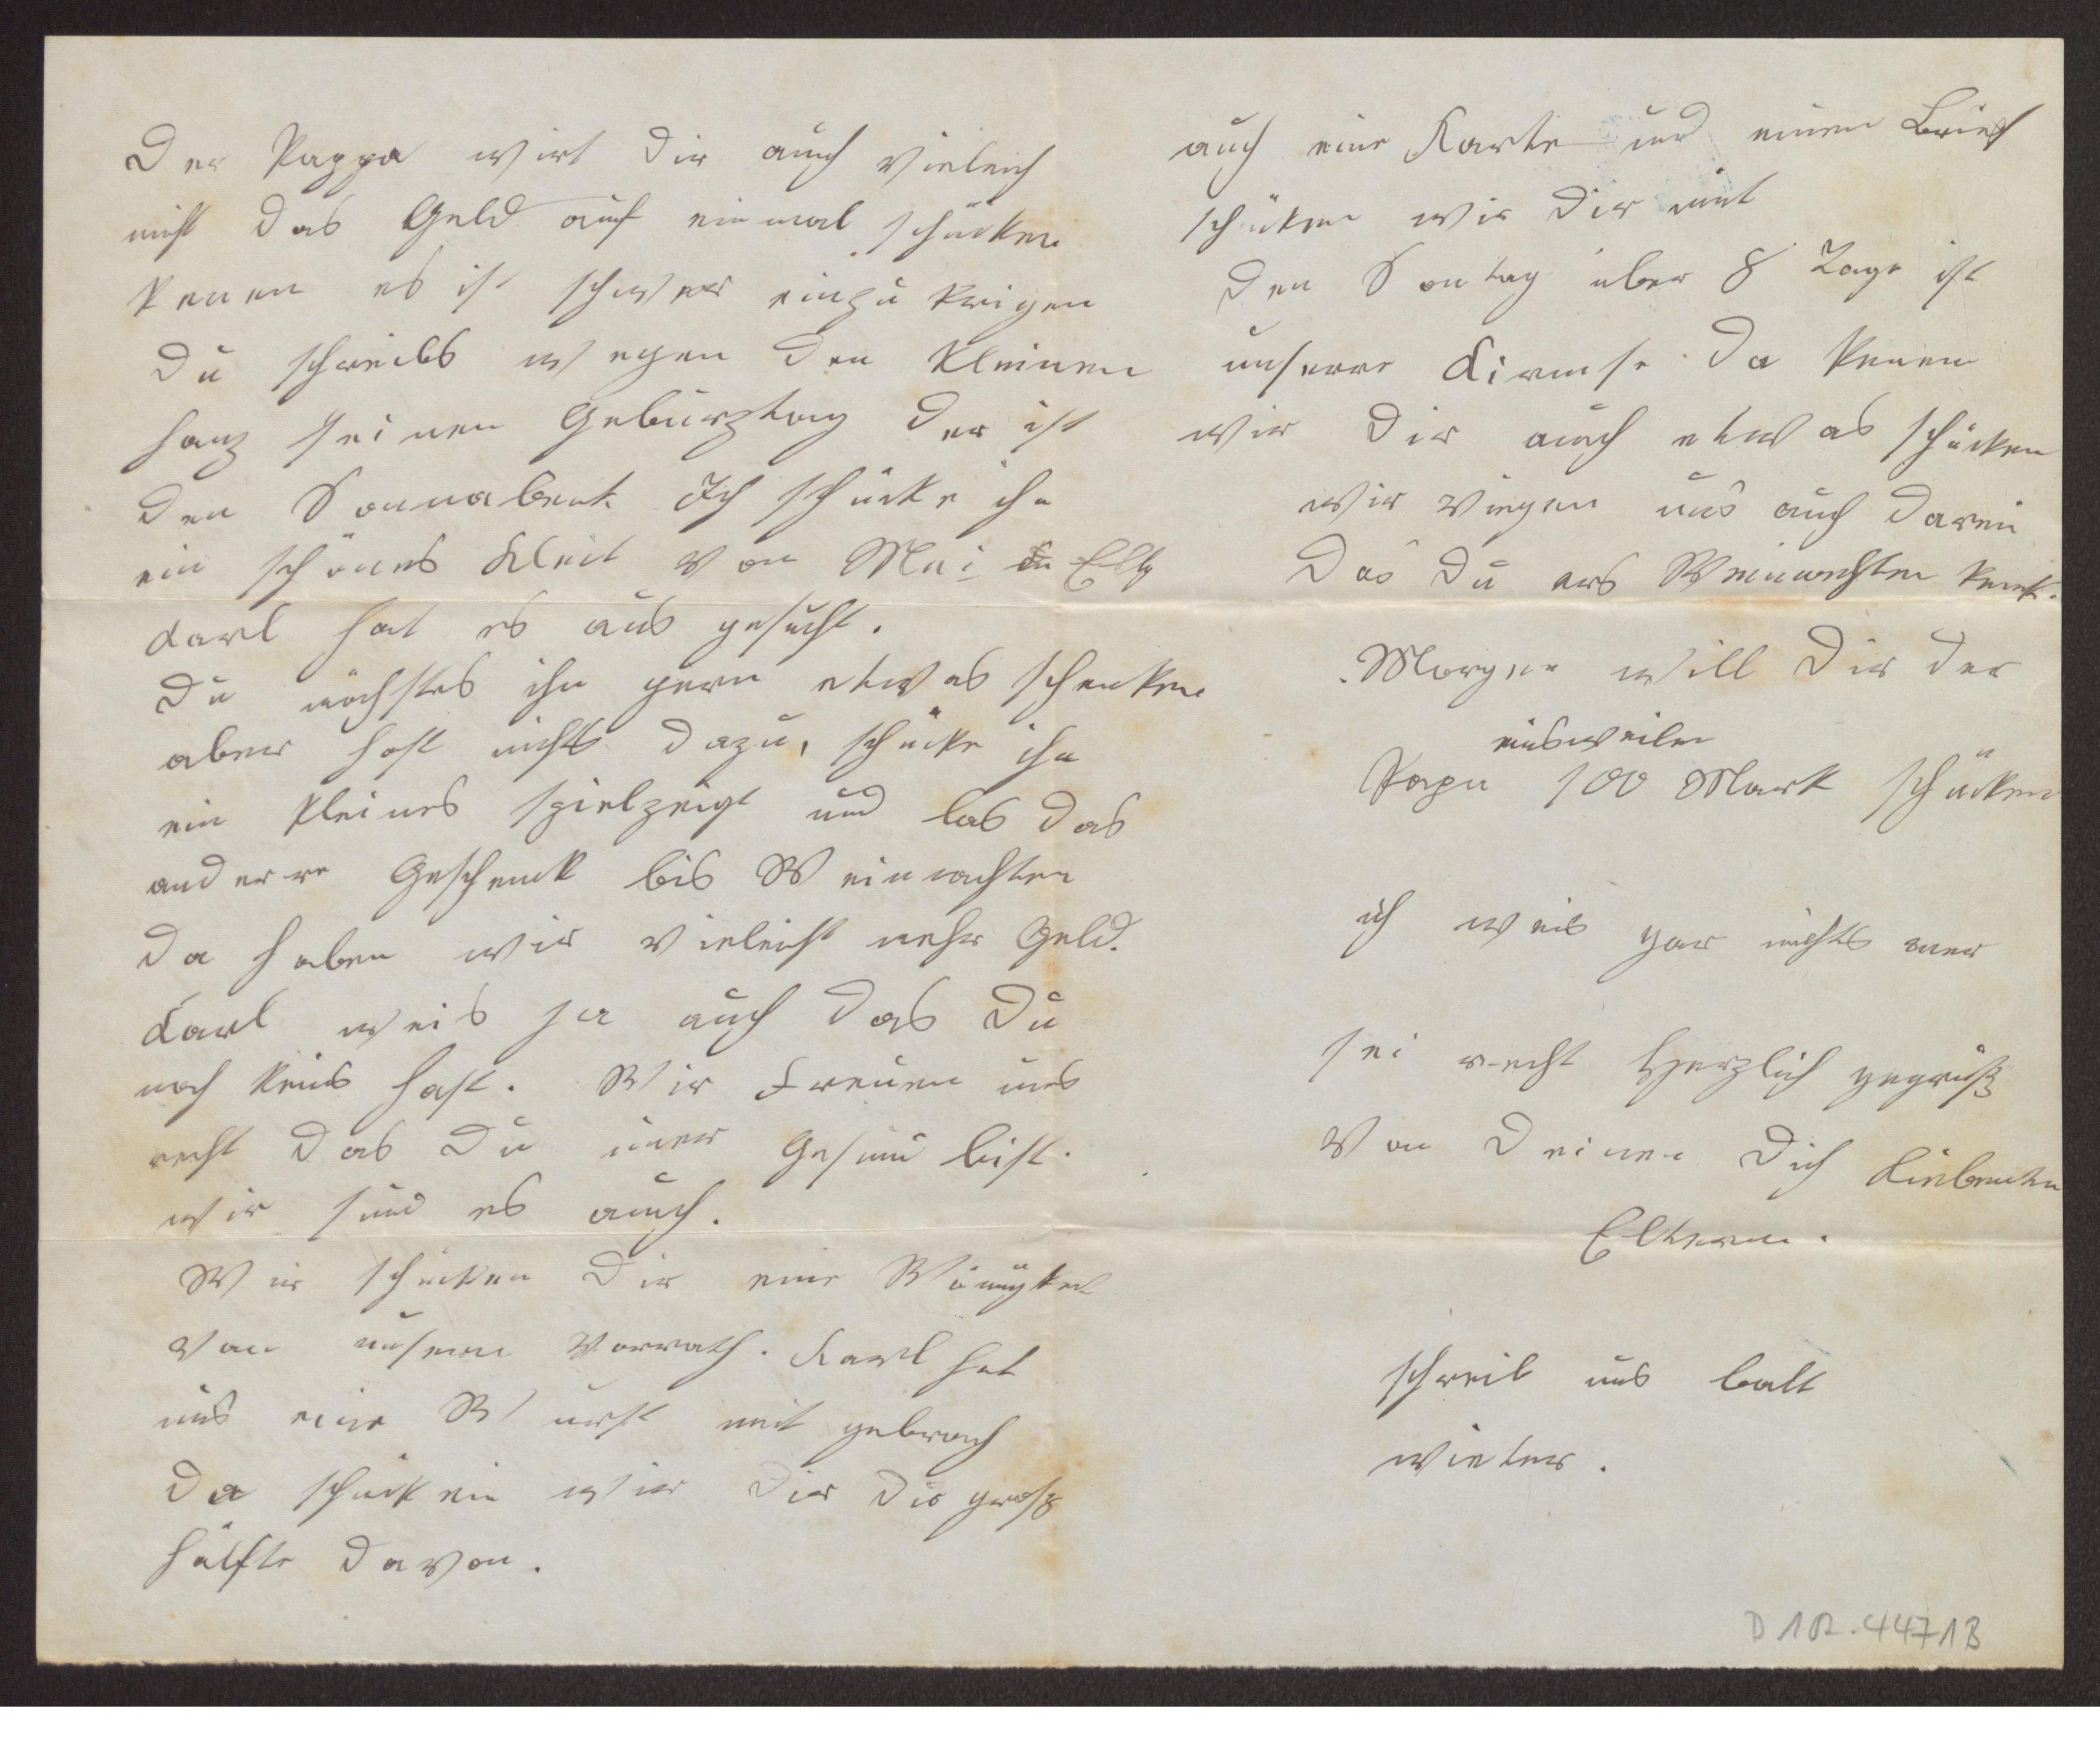 Der Pappa wirt dir auch vieleich
nicht das Geld auf einmal schücken
kenen es ist schwer einzu krigen
Du schreibs wegen den kleinen
hanz seinen Geburztag der ist
den Sonnabent. Ich schücke ihn
ein schönes Kleit von Mei Elly
Karl hat es aus gesucht.
Du möchstes ihn gern etwas schenken
aber hast nichts dazu, schücke ihn
ein kleines spielzeigt und las das
anderre Geschenck bis Weinachten
da haben wir vieleicht mehr Geld.
Karl weis ja auch das Du
noch keins hast. Wir Freuen uns
recht das Du imer Gesund bist.
wir sind es auch.
Wir schücken Dir eine Wänigkeit
von unsern Vorrath. Karl hat
uns eine Wurst mit gebrach
da schücken wir dir die grosse
hälfte davon.
auch eine Karte und einen Brief
schücken wir dir mit
den Sontag über 8 Tage ist
unserre Kirmse da kenen
wir dir auch etwas schücken
wir viegen uns auch darein
Das Du ers Weinnachten kemst.
Morgen will Dir der
einsweilen
Papa 100 Mark schücken
ich weis gar nichts mer
sei recht Herzlich gegrüß
von Deinen Dich Liebenten
Eltern.
schreib uns balt
wieter.
D 1R.4471B